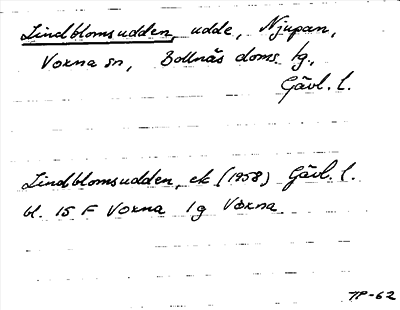 Lindblomsudden, udde, Njupan,
Voxna sn, Bollnäs doms. tg.,
Gävl. l.
Lindblomsudden, ek (1958) Gävl. l.
bl. 15 F Voxna 1 g Voxna
TP-62